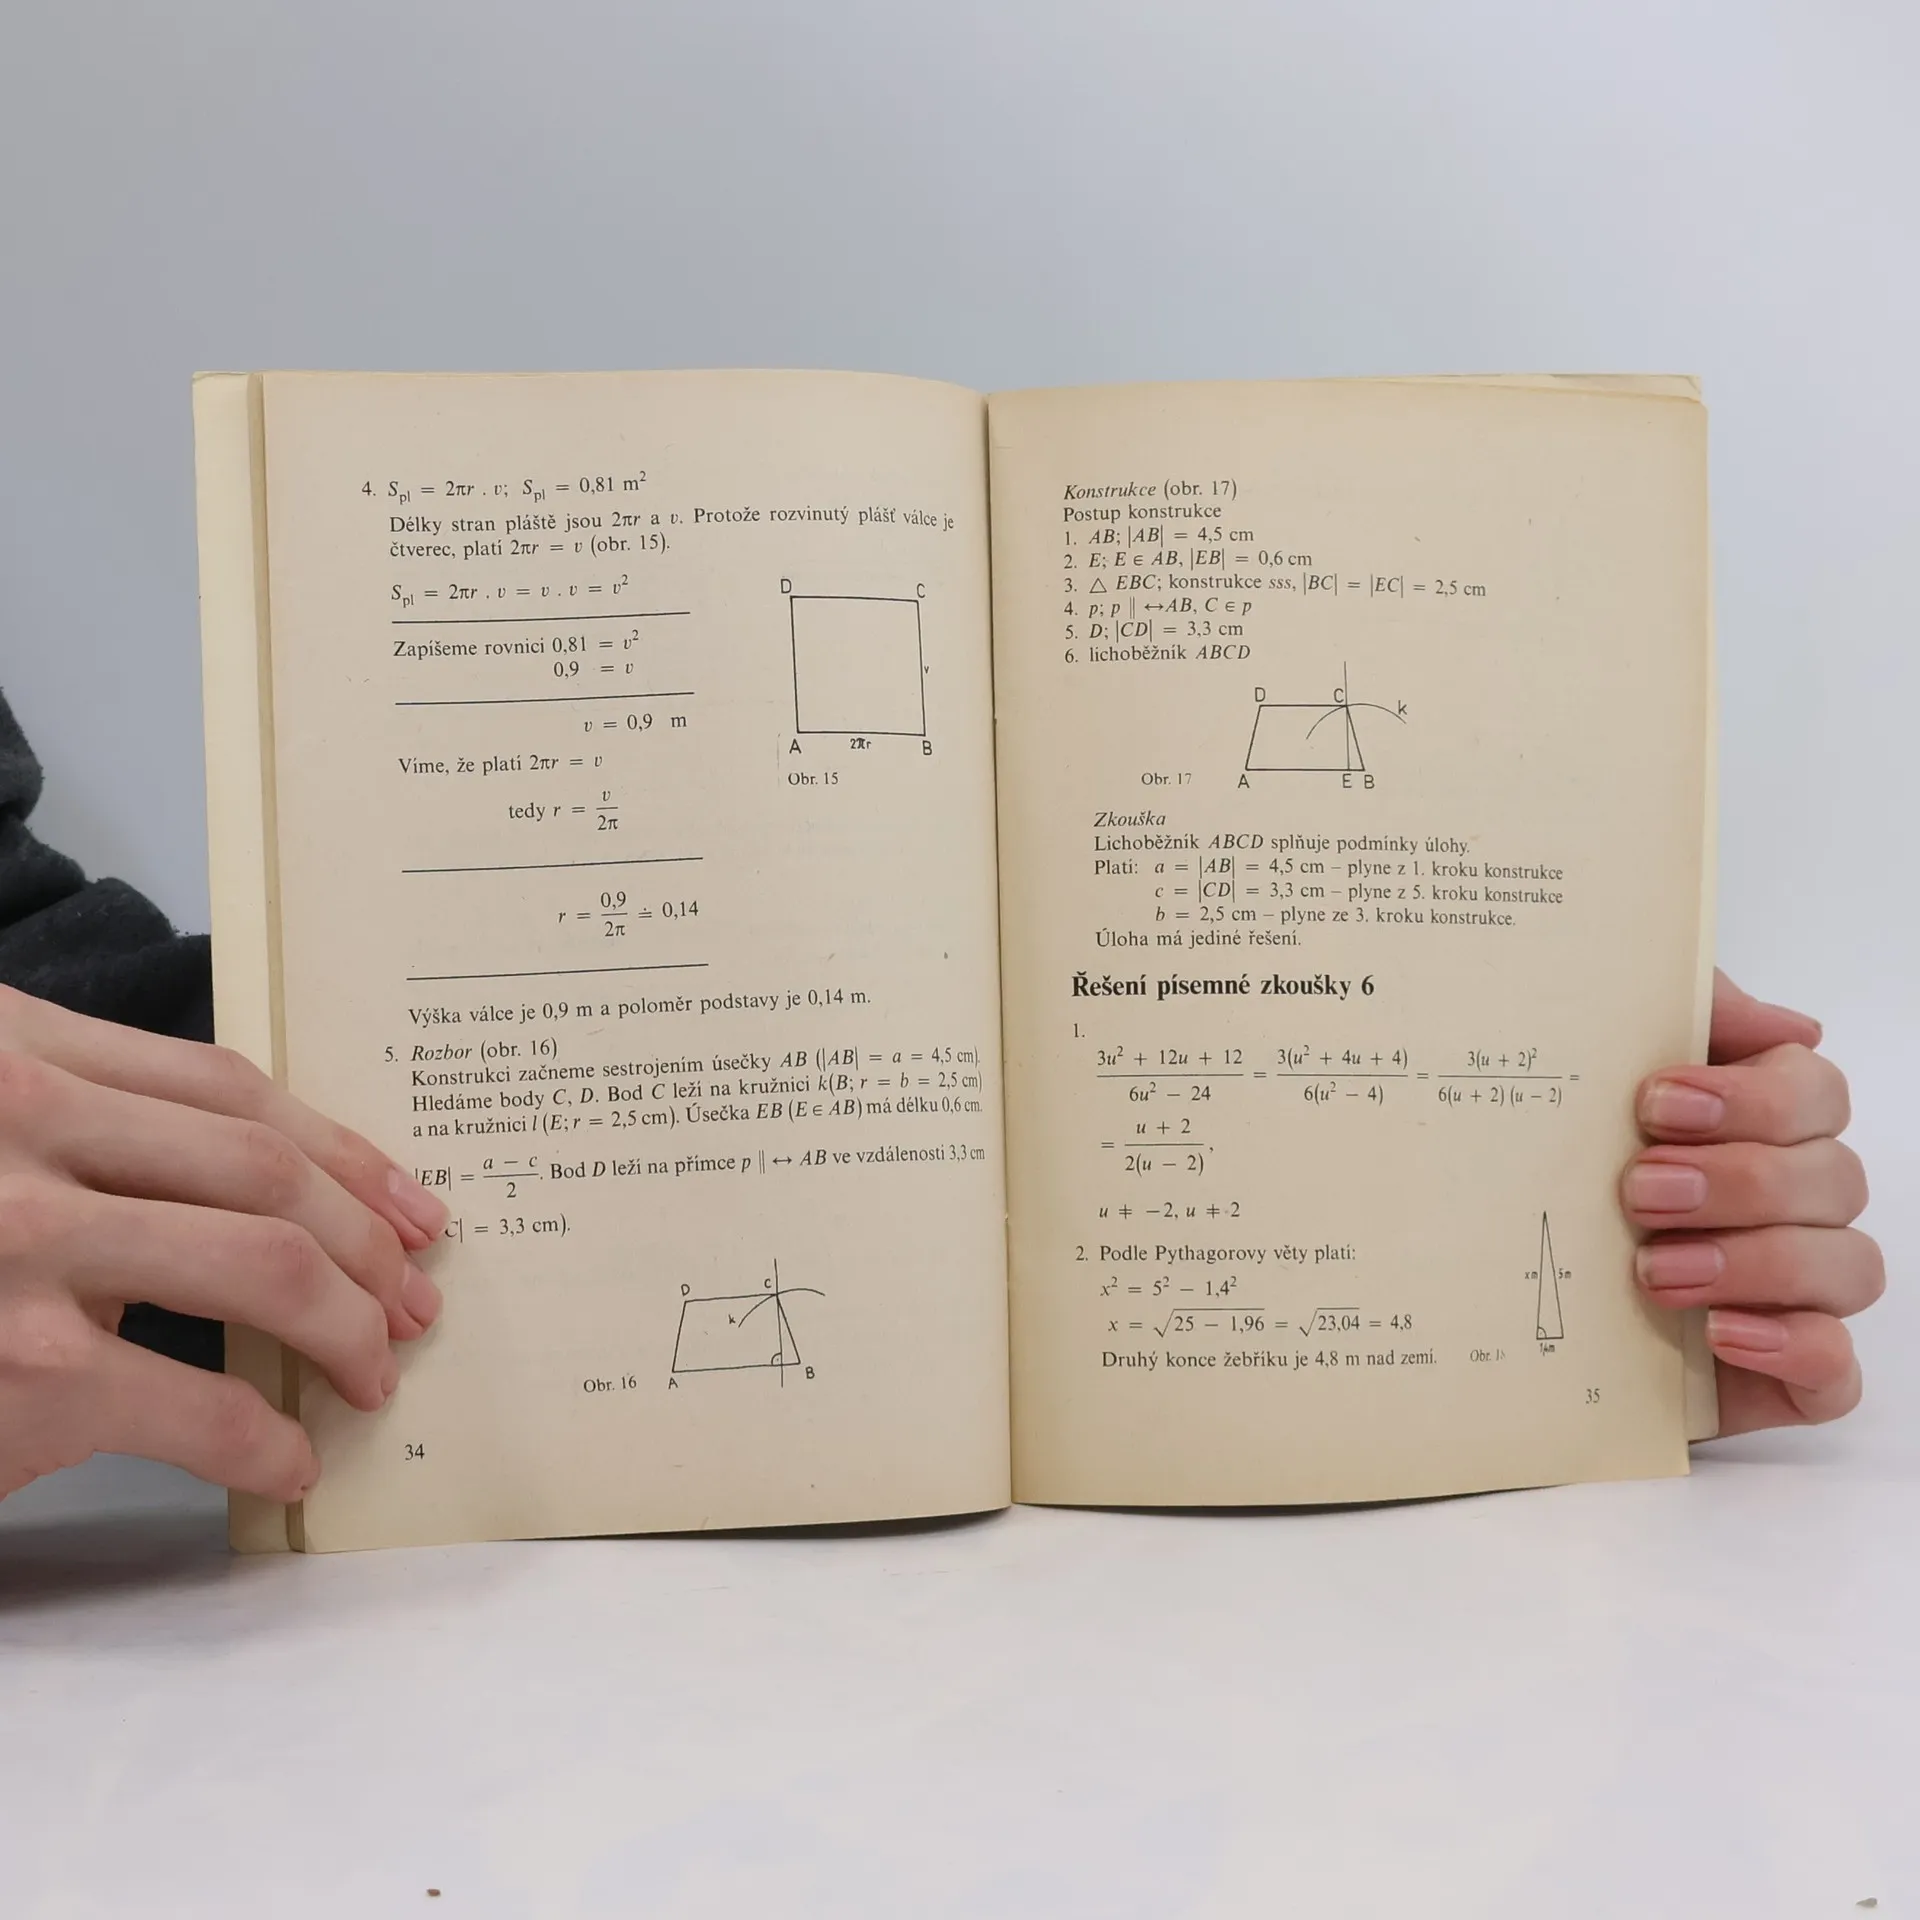 4. S_pl = 2πr . v; S_pl = 0,81 m²
Délky stran pláště jsou 2πr a v. Protože rozvinutý plášť válce je
čtverec, platí 2πr = v (obr. 15).
S_pl = 2πr . v = v . v = v²
Zapíšeme rovnici 0,81 = v²
0,9 = v
v = 0,9 m
Víme, že platí 2πr = v
tedy r = v/2π
r = 0,9/2π ≐ 0,14
D C
v
A 2πr B
Obr. 15
Výška válce je 0,9 m a poloměr podstavy je 0,14 m.
5. Rozbor (obr. 16)
Konstrukci začneme sestrojením úsečky AB (|AB| = a = 4,5 cm).
Hledáme body C, D. Bod C leží na kružnici k(B; r = b = 2,5 cm)
a na kružnici l (E; r = 2,5 cm). Úsečka EB (E ∈ AB) má délku 0,6 cm.
|EB| = (a − c)/2. Bod D leží na přímce p ∥ ↔ AB ve vzdálenosti 3,3 cm
C| = 3,3 cm).
D C
k
Obr. 16 A B
34
Konstrukce (obr. 17)
Postup konstrukce
1. AB; |AB| = 4,5 cm
2. E; E ∈ AB, |EB| = 0,6 cm
3. △ EBC; konstrukce sss, |BC| = |EC| = 2,5 cm
4. p; p ∥ ↔AB, C ∈ p
5. D; |CD| = 3,3 cm
6. lichoběžník ABCD
D C k
Obr. 17 A E B
Zkouška
Lichoběžník ABCD splňuje podmínky úlohy.
Platí: a = |AB| = 4,5 cm – plyne z 1. kroku konstrukce
c = |CD| = 3,3 cm – plyne z 5. kroku konstrukce
b = 2,5 cm – plyne ze 3. kroku konstrukce.
Úloha má jediné řešení.
Řešení písemné zkoušky 6
1.
(3u² + 12u + 12)/(6u² − 24) = 3(u² + 4u + 4)/6(u² − 4) = 3(u + 2)²/6(u + 2)(u − 2) =
= (u + 2)/2(u − 2),
u ≠ −2, u ≠ 2
2. Podle Pythagorovy věty platí:
x² = 5² − 1,4²
x = √(25 − 1,96) = √(23,04) = 4,8
Druhý konec žebříku je 4,8 m nad zemí.
x m 5 m
1,4 m
Obr. 18
35